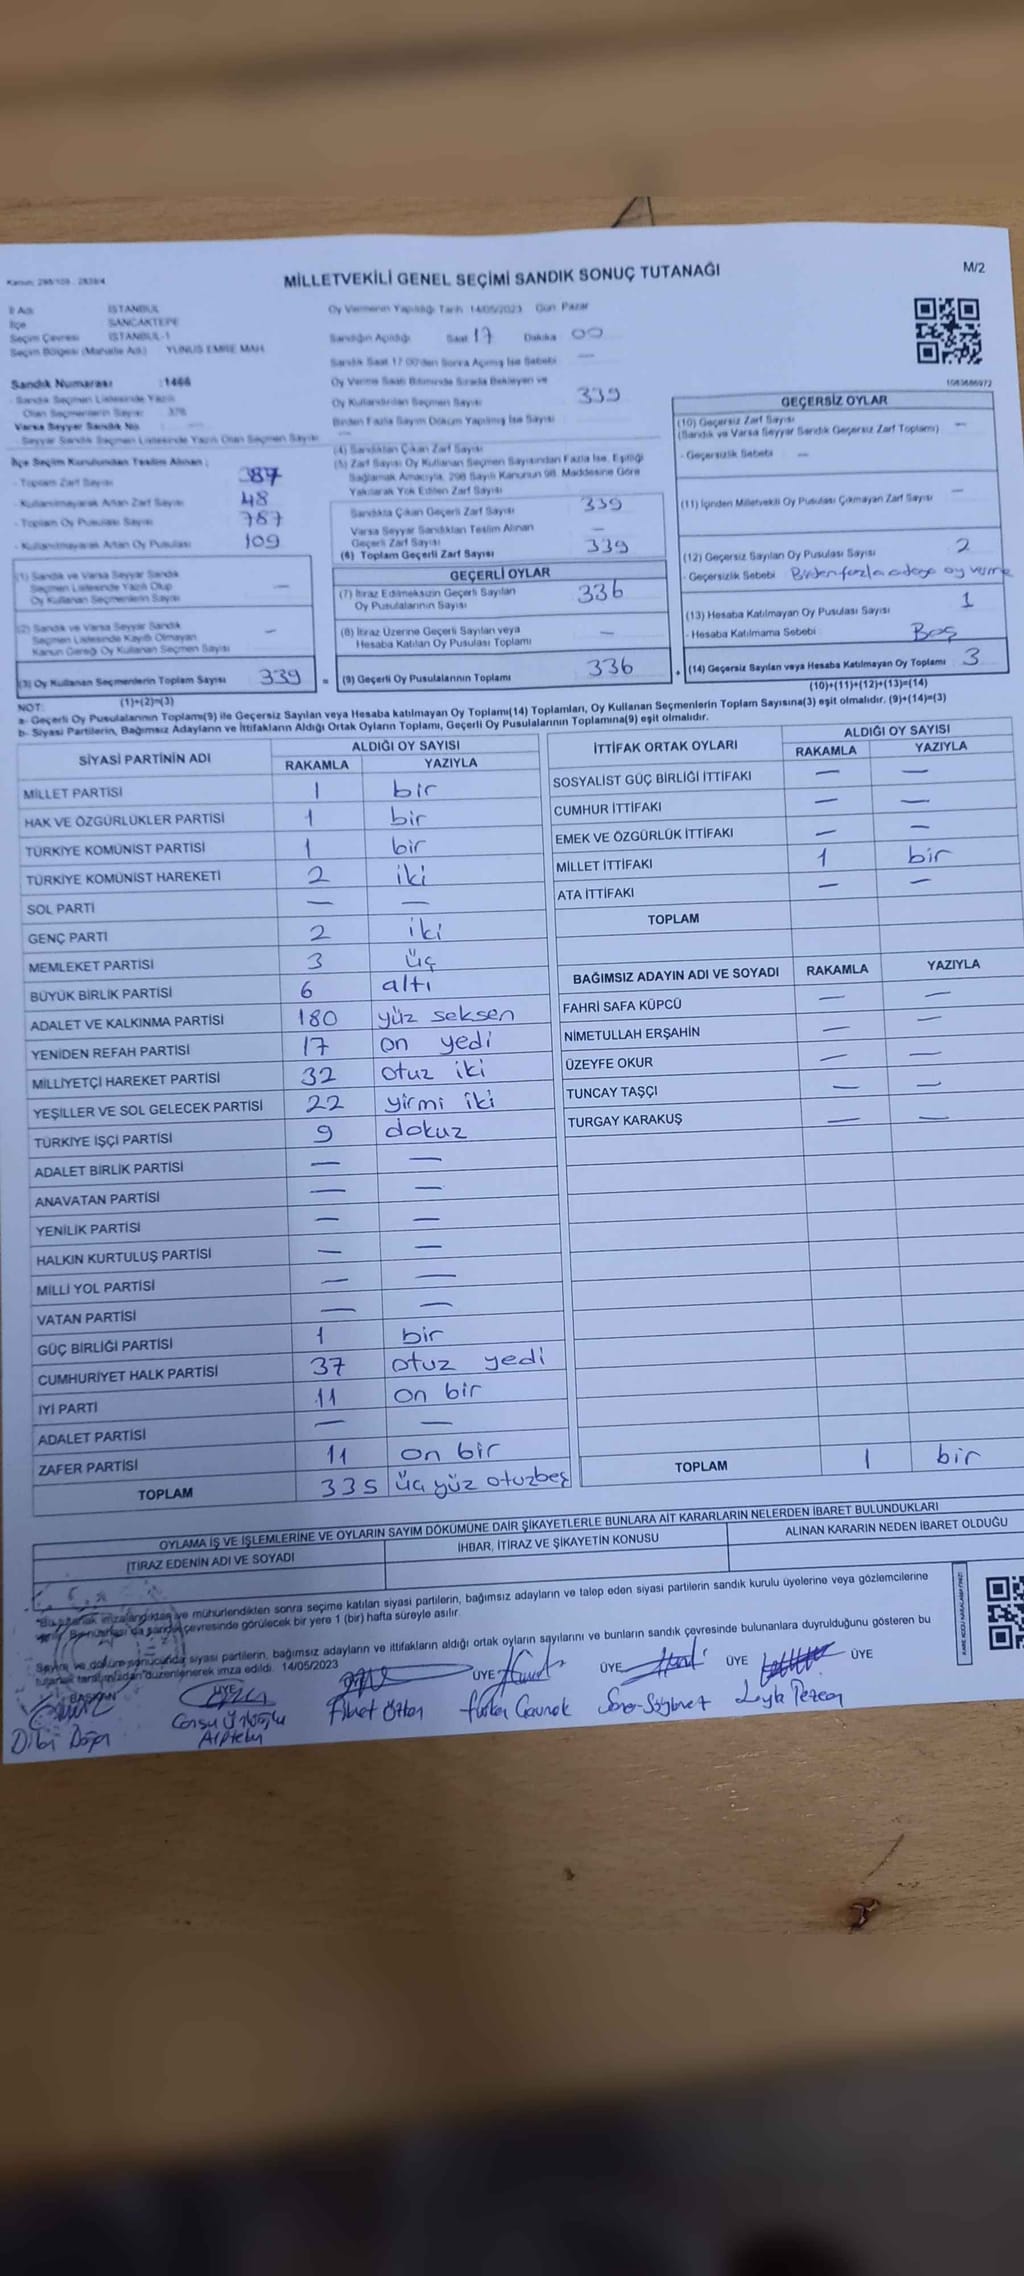 Kanun: 298/109 - 2839/4
MİLLETVEKİLİ GENEL SEÇİMİ SANDIK SONUÇ TUTANAĞI
M/2
İl Adı İSTANBUL
İlçe SANCAKTEPE
Seçim Çevresi İSTANBUL-1
Seçim Bölgesi (Mahalle Adı) YUNUS EMRE MAH.
Sandık Numarası :1466
- Sandık Seçmen Listesinde Yazılı
Olan Seçmenlerin Sayısı 376
Varsa Seyyar Sandık No —
- Seyyar Sandık Seçmen Listesinde Yazılı Olan Seçmen Sayısı —
İlçe Seçim Kurulundan Teslim Alınan ;
- Toplam Zarf Sayısı 387
- Kullanılmayarak Artan Zarf Sayısı 48
- Toplam Oy Pusulası Sayısı 787
- Kullanılmayarak Artan Oy Pusulası 109
(1) Sandık ve Varsa Seyyar Sandık
Seçmen Listesinde Yazılı Olup
Oy Kullanan Seçmenlerin Sayısı —
(2) Sandık ve Varsa Seyyar Sandık
Seçmen Listesinde Kayıtlı Olmayan
Kanun Gereği Oy Kullanan Seçmen Sayısı —
(3) Oy Kullanan Seçmenlerin Toplam Sayısı 339 =
(1)+(2)=(3)
Oy Vermenin Yapıldığı Tarih 14/05/2023 Gün Pazar
Sandığın Açıldığı Saat 17 Dakika 00
Sandık Saat 17:00'den Sonra Açılmış İse Sebebi —
Oy Verme Saati Bitiminde Sırada Bekleyen ve
Oy Kullandırılan Seçmen Sayısı 339
Birden Fazla Sayım Döküm Yapılmış İse Sayısı
(4) Sandıktan Çıkan Zarf Sayısı
(5) Zarf Sayısı Oy Kullanan Seçmen Sayısından Fazla İse, Eşitliği
Sağlamak Amacıyla, 298 Sayılı Kanunun 98. Maddesine Göre
Yakılarak Yok Edilen Zarf Sayısı
Sandıkta Çıkan Geçerli Zarf Sayısı 339
Varsa Seyyar Sandıktan Teslim Alınan
Geçerli Zarf Sayısı —
(6) Toplam Geçerli Zarf Sayısı 339
GEÇERLİ OYLAR
(7) İtiraz Edilmeksizin Geçerli Sayılan
Oy Pusulalarının Sayısı 336
(8) İtiraz Üzerine Geçerli Sayılan veya
Hesaba Katılan Oy Pusulası Toplamı —
(9) Geçerli Oy Pusulalarının Toplamı 336 +
1083686972
GEÇERSİZ OYLAR
(10) Geçersiz Zarf Sayısı
(Sandık ve Varsa Seyyar Sandık Geçersiz Zarf Toplamı) —
- Geçersizlik Sebebi —
(11) İçinden Milletvekili Oy Pusulası Çıkmayan Zarf Sayısı —
(12) Geçersiz Sayılan Oy Pusulası Sayısı 2
- Geçersizlik Sebebi Birden fazla adaya oy verme
(13) Hesaba Katılmayan Oy Pusulası Sayısı 1
- Hesaba Katılmama Sebebi Boş
(14) Geçersiz Sayılan veya Hesaba Katılmayan Oy Toplamı 3
(10)+(11)+(12)+(13)=(14)
NOT:
a- Geçerli Oy Pusulalarının Toplamı(9) ile Geçersiz Sayılan veya Hesaba katılmayan Oy Toplamı(14) Toplamları, Oy Kullanan Seçmenlerin Toplam Sayısına(3) eşit olmalıdır. (9)+(14)=(3)
b- Siyasi Partilerin, Bağımsız Adayların ve İttifakların Aldığı Ortak Oyların Toplamı, Geçerli Oy Pusulalarının Toplamına(9) eşit olmalıdır.
SİYASİ PARTİNİN ADI ALDIĞI OY SAYISI
RAKAMLA YAZIYLA
MİLLET PARTİSİ 1 bir
HAK VE ÖZGÜRLÜKLER PARTİSİ 1 bir
TÜRKİYE KOMÜNİST PARTİSİ 1 bir
TÜRKİYE KOMÜNİST HAREKETİ 2 iki
SOL PARTİ — —
GENÇ PARTİ 2 iki
MEMLEKET PARTİSİ 3 üç
BÜYÜK BİRLİK PARTİSİ 6 altı
ADALET VE KALKINMA PARTİSİ 180 yüz seksen
YENİDEN REFAH PARTİSİ 17 on yedi
MİLLİYETÇİ HAREKET PARTİSİ 32 otuz iki
YEŞİLLER VE SOL GELECEK PARTİSİ 22 yirmi iki
TÜRKİYE İŞÇİ PARTİSİ 9 dokuz
ADALET BİRLİK PARTİSİ — —
ANAVATAN PARTİSİ — —
YENİLİK PARTİSİ — —
HALKIN KURTULUŞ PARTİSİ — —
MİLLİ YOL PARTİSİ — —
VATAN PARTİSİ — —
GÜÇ BİRLİĞİ PARTİSİ 1 bir
CUMHURİYET HALK PARTİSİ 37 otuz yedi
İYİ PARTİ 11 on bir
ADALET PARTİSİ — —
ZAFER PARTİSİ 11 on bir
TOPLAM 335 üç yüz otuzbeş
İTTİFAK ORTAK OYLARI ALDIĞI OY SAYISI
RAKAMLA YAZIYLA
SOSYALİST GÜÇ BİRLİĞİ İTTİFAKI — —
CUMHUR İTTİFAKI — —
EMEK VE ÖZGÜRLÜK İTTİFAKI — —
MİLLET İTTİFAKI 1 bir
ATA İTTİFAKI — —
TOPLAM
BAĞIMSIZ ADAYIN ADI VE SOYADI RAKAMLA YAZIYLA
FAHRİ SAFA KÜPCÜ — —
NİMETULLAH ERŞAHİN — —
ÜZEYFE OKUR — —
TUNCAY TAŞÇI — —
TURGAY KARAKUŞ — —
TOPLAM 1 bir
OYLAMA İŞ VE İŞLEMLERİNE VE OYLARIN SAYIM DÖKÜMÜNE DAİR ŞİKAYETLERLE BUNLARA AİT KARARLARIN NELERDEN İBARET BULUNDUKLARI
İTİRAZ EDENİN ADI VE SOYADI İHBAR, İTİRAZ VE ŞİKAYETİN KONUSU ALINAN KARARIN NEDEN İBARET OLDUĞU
*Bu tutanak imzalandıktan ve mühürlendikten sonra seçime katılan siyasi partilerin, bağımsız adayların ve talep eden siyasi partilerin sandık kurulu üyelerine veya gözlemcilerine
verilir. Bir nüshası da sandık çevresinde görülecek bir yere 1 (bir) hafta süreyle asılır.
Sayım ve döküm sonucunda siyasi partilerin, bağımsız adayların ve ittifakların aldığı ortak oyların sayılarını ve bunların sandık çevresinde bulunanlara duyrulduğunu gösteren bu
tutanak tarafımızdan düzenlenerek imza edildi. 14/05/2023
BAŞKAN ÜYE ÜYE ÜYE ÜYE ÜYE